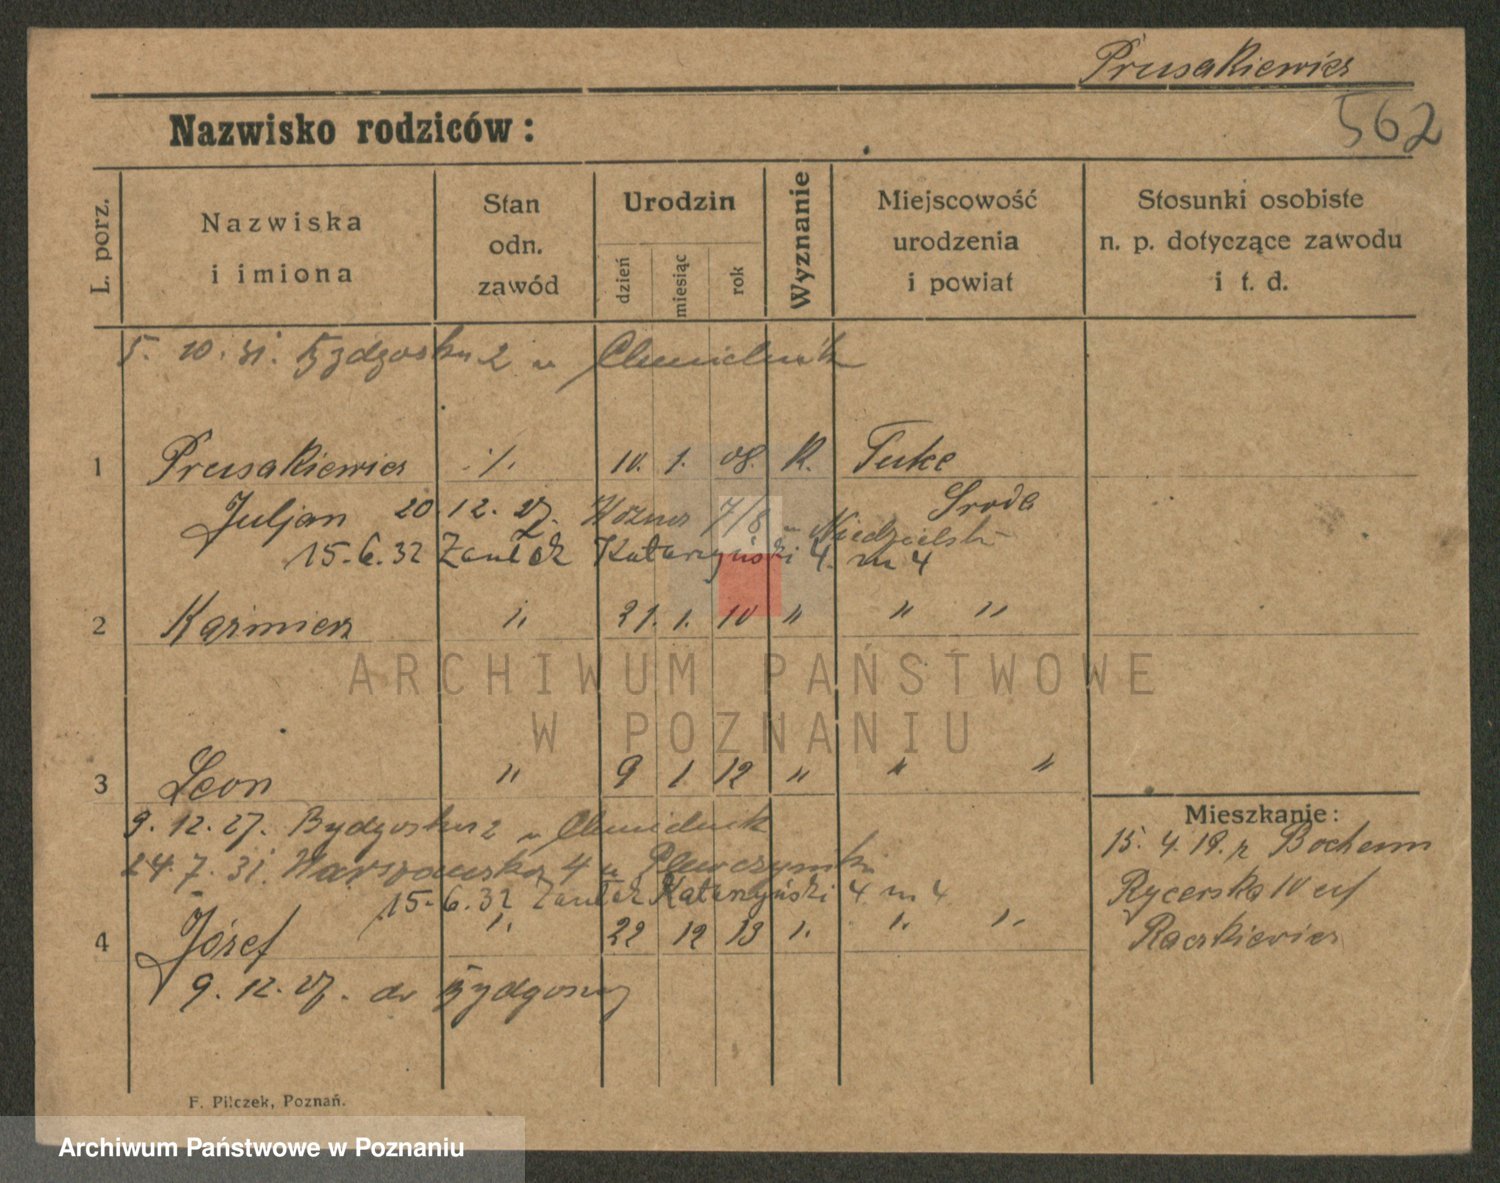 Prusakiewicz
562
Nazwisko rodziców:
L. porz.
Nazwiska
i imiona
Stan
odn.
zawód
Urodzin
dzień
miesiąc
rok
Wyznanie
Miejscowość
urodzenia
i powiat
Stosunki osobiste
n. p. dotyczące zawodu
i t. d.
5. 10. 31. Bydgoska 2 u Chmielnik
1 Prusakiewicz ./. 10. 1. 08. K.
Środa
Juljan 20. 12. 27. Woźna 7/8 u
15.-6. 32 Zaułek Katarzyński 4. m 4
2 Kazimierz " 21. 1. 10 " " "
ARCHIWUM PAŃSTWOWE
W POZNANIU
3 Leon " 9 1 12 " " "
9. 12. 27. Bydgoska 2 u Chmielnik
24. 7. 31. Warszawska 4 u
15.-6. 32 Zaułek Katarzyński 4 m 4
4 Józef " 22 12 13 " " "
9. 12. 27. do Bydgoszczy
Mieszkanie:
15. 4. 19. z Bochum
Rycerska 10
Raczkiewicz
F. Pilczek, Poznań.
Archiwum Państwowe w Poznaniu